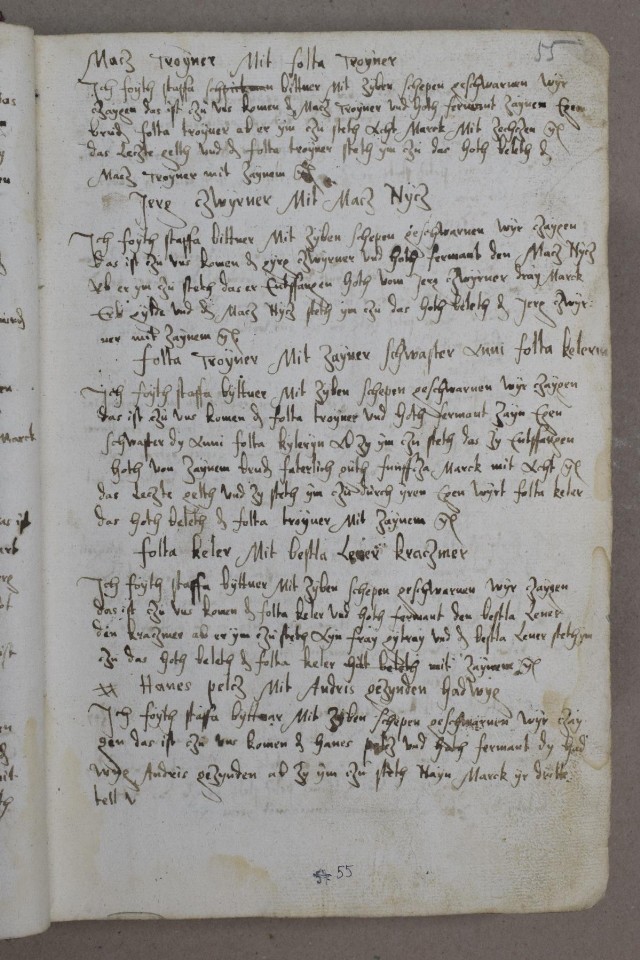 55
Macz Troyner Mit folta Troyner
Ich foyth staffa bittner Mit zyben schepen geschwarnen wyr
czaygen das ist czu vns komen d Macz Troyner vnd hoth fermant zaynem
brud folta troyner ab er ym czu steth Acht Marck Mit
das leczte gelth vnd d folta troyner steth ym czu das hoth beleth d
Macz Troyner mit zaynem gl
Jerg czwyrner Mit Macz Nycz
Ich foyth staffa bittner Mit zyben schepen geschwarnen wyr czaygen
das ist czu vns komen d gyrg czwyrner vnd hoth fermant den Macz Nycz
ab er ym zu steth das er Entffangen hoth vom Jerg czwyrner dray Marck
vnd d Macz Nycz steth ym czu das hoth beleth d Jerg czwyr
ner mit zaynem gl
folta Troyner Mit zayner schwaster Anni folta kelerin
Ich foyth staffa byttner Mit zyben schepen geschwarnen wyr czaygen
das ist czu vns komen d folta troyner vnd hoth fermant zayn
schwaster dy Anni folta kyleryn ab zy ym zu steth das zy Entffangen
hoth von zaynem brud faterlich guth funffcza Marck mit Acht gl
das leczte gelth vnd zy steth ym czu durch yren wyrt folta keler
das hoth beleth d folta troyner Mit zaynem gl
folta keler Mit bestla Lener kraczmer
Ich foyth staffa byttner Mit zyben schepen geschwarnen wyr czaygen
das ist czu vns komen d folta keler vnd hoth fermant den bestla Lener
den kraczmer ab er ym czu steth Ayn fray vnd d bestla Lener steth ym
czu das hoth beleth d folta keler mit zaynem gl
Hanes pelcz Mit Andris gezynden hadwyg
Ich foyth staffa byttnar Mit zyben schepen geschwarnen wyr czay
gen das ist czu vns komen d hanes pelcz vnd hoth fermant dy had
wyg Andris gezynden ab zy ym czu steth Nayn Marck yr dritte
tell
55